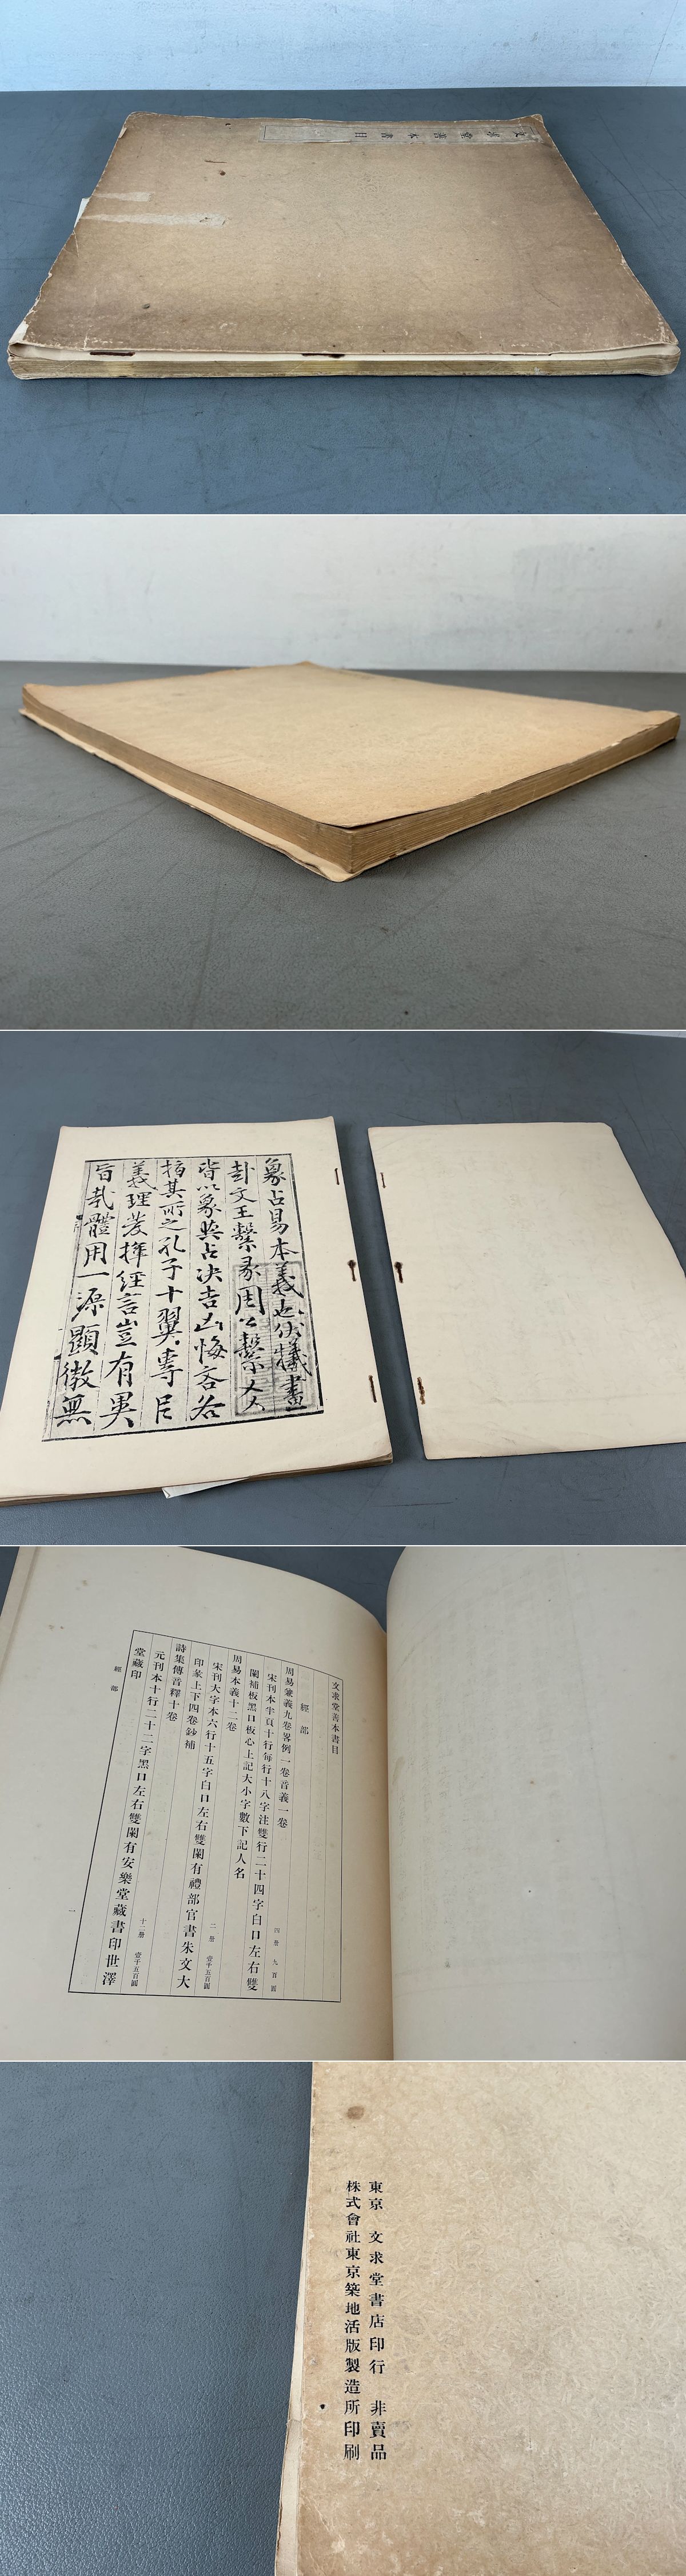 文求堂善本書目
象占易本義也伏犧畫
卦文王繫彖周公繫爻
皆以象與占決吉凶悔吝各
指其所之孔子十翼專㠯
義理發揮經言豈有異
旨哉體用一源顯微無
文求堂善本書目
經部
周易兼義九卷畧例一卷音義一卷
四册 九百圓
宋刊本半頁十行每行十八字注雙行二十四字白口左右雙
闌補板黑口板心上記大小字數下記人名
周易本義十二卷
二册 壹千五百圓
宋刊大字本六行十五字白口左右雙闌有禮部官書朱文大
印彖上下四卷鈔補
詩集傳音釋十卷
十二册 壹千五百圓
元刊本十行二十二字黑口左右雙闌有安樂堂藏書印世澤
堂藏印
經部
一
東京 文求堂書店印行 非賣品
株式會社東京築地活版製造所印刷